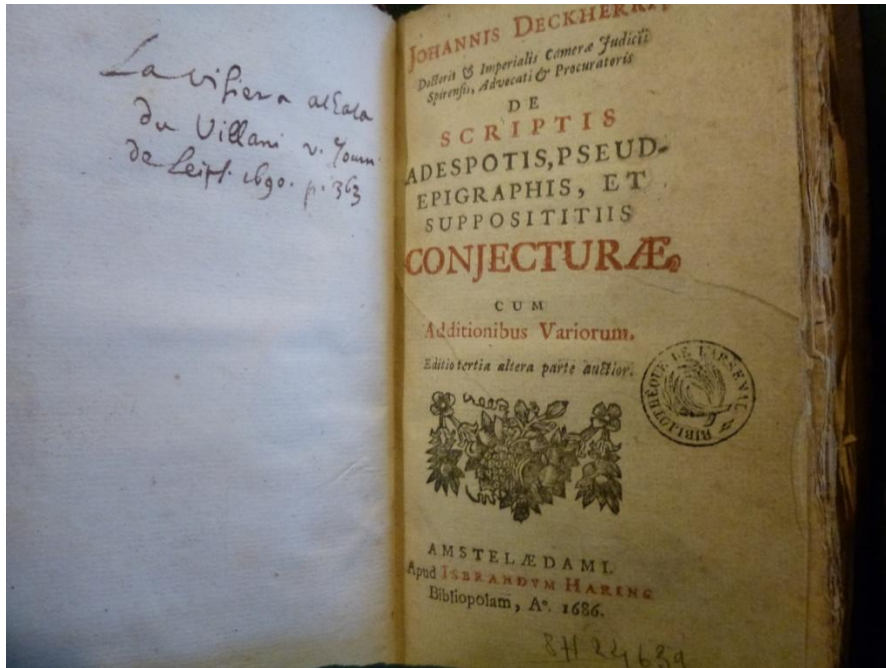 La visiera alzata
du Villani v. Journ.
de Leips. 1690. p. 363
JOHANNIS DECKHERRI,
Doctoris & Imperialis Cameræ Judicii
Spirensis, Advocati & Procuratoris
DE
SCRIPTIS
ADESPOTIS, PSEUD-
EPIGRAPHIS, ET
SUPPOSITITIIS
CONJECTURÆ,
CUM
Additionibus Variorum.
Editio tertia altera parte auctior.
BIBLIOTHÈQUE DE L'ARSENAL
AMSTELÆDAMI.
Apud ISBRANDVM HARING
Bibliopolam, Aº. 1686.
8H 24639